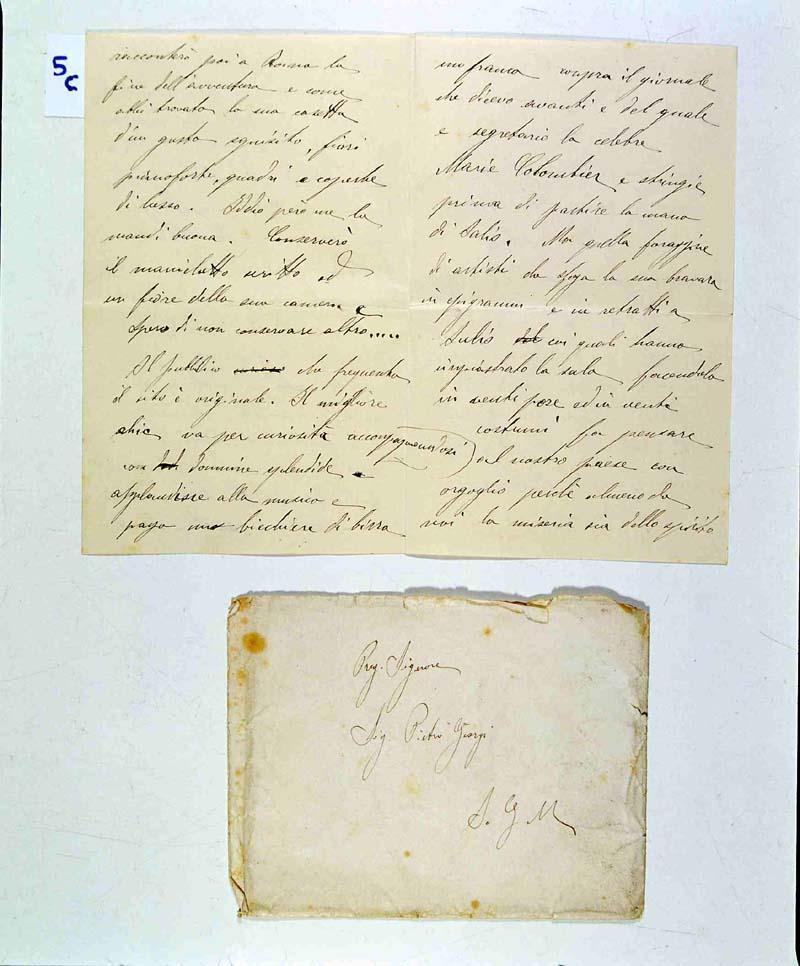 5c
racconterò poi a Roma la
fine dell'avventura e come
abbi trovato la sua casetta
d'un gusto squisito, fiori
pianoforte, quadri e coperte
di lusso. Iddio però me la
mandi buona. Conserverò
il manicotto scritto ed
un fiore della sua camera e
spero di non conservare altro....
Il pubblico che frequenta
il sito è originale. Il migliore
chic va per curiosità accompagnandosi
con donnine splendide e
applaudisce alla musica e
paga un bicchiere di birra
un franco compra il giornale
che dicevo avanti e del quale
è segretario la celebre
Marie Colombier e stringe
prima di partire la mano
di Salis. Ma quella
di artisti che sfoga la sua bravura
in epigrammi e in ritratti a
Salis coi quali hanno
impiastrato la sala facendolo
in venti pose ed in venti
costumi fa pensare
al nostro paese con
orgoglio perché almeno da
noi la miseria sia dello spirito
Preg. Signore
Sig. Pietro Giorgi
S. G. M.